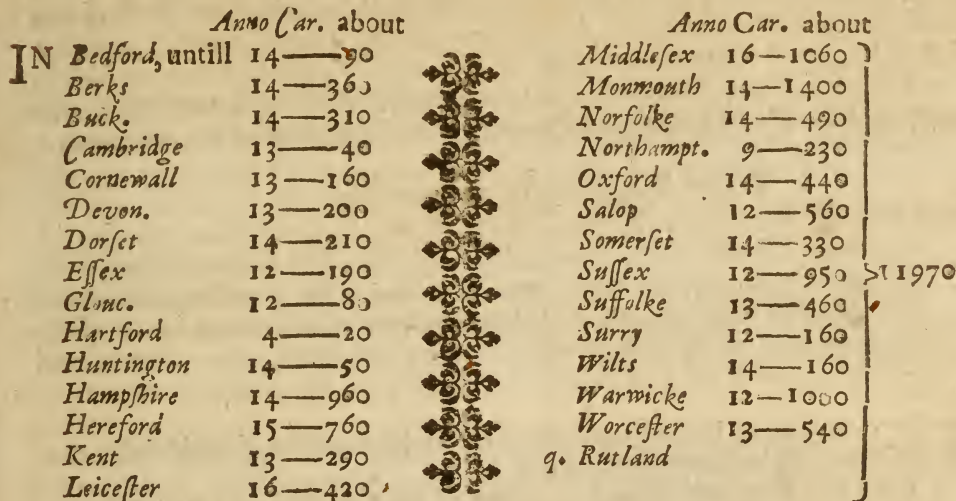 Anno Car. about
IN Bedford, untill 14——90
Berks 14——360
Buck. 14——310
Cambridge 13——40
Cornewall 13——160
Devon. 13——200
Dorſet 14——210
Eſſex 12——190
Glouc. 12——80
Hartford 4——20
Huntington 14——50
Hampſhire 14——960
Hereford 15——760
Kent 13——290
Leiceſter 16——420
Anno Car. about
Middleſex 16—1060
Monmouth 14—1400
Norfolke 14——490
Northampt. 9——230
Oxford 14——440
Salop 12——560
Somerſet 14——330
Suſſex 12——950 11970
Suffolke 13——460
Surry 12——160
Wilts 14——160
Warwicke 12—1000
Worceſter 13——540
q. Rutland